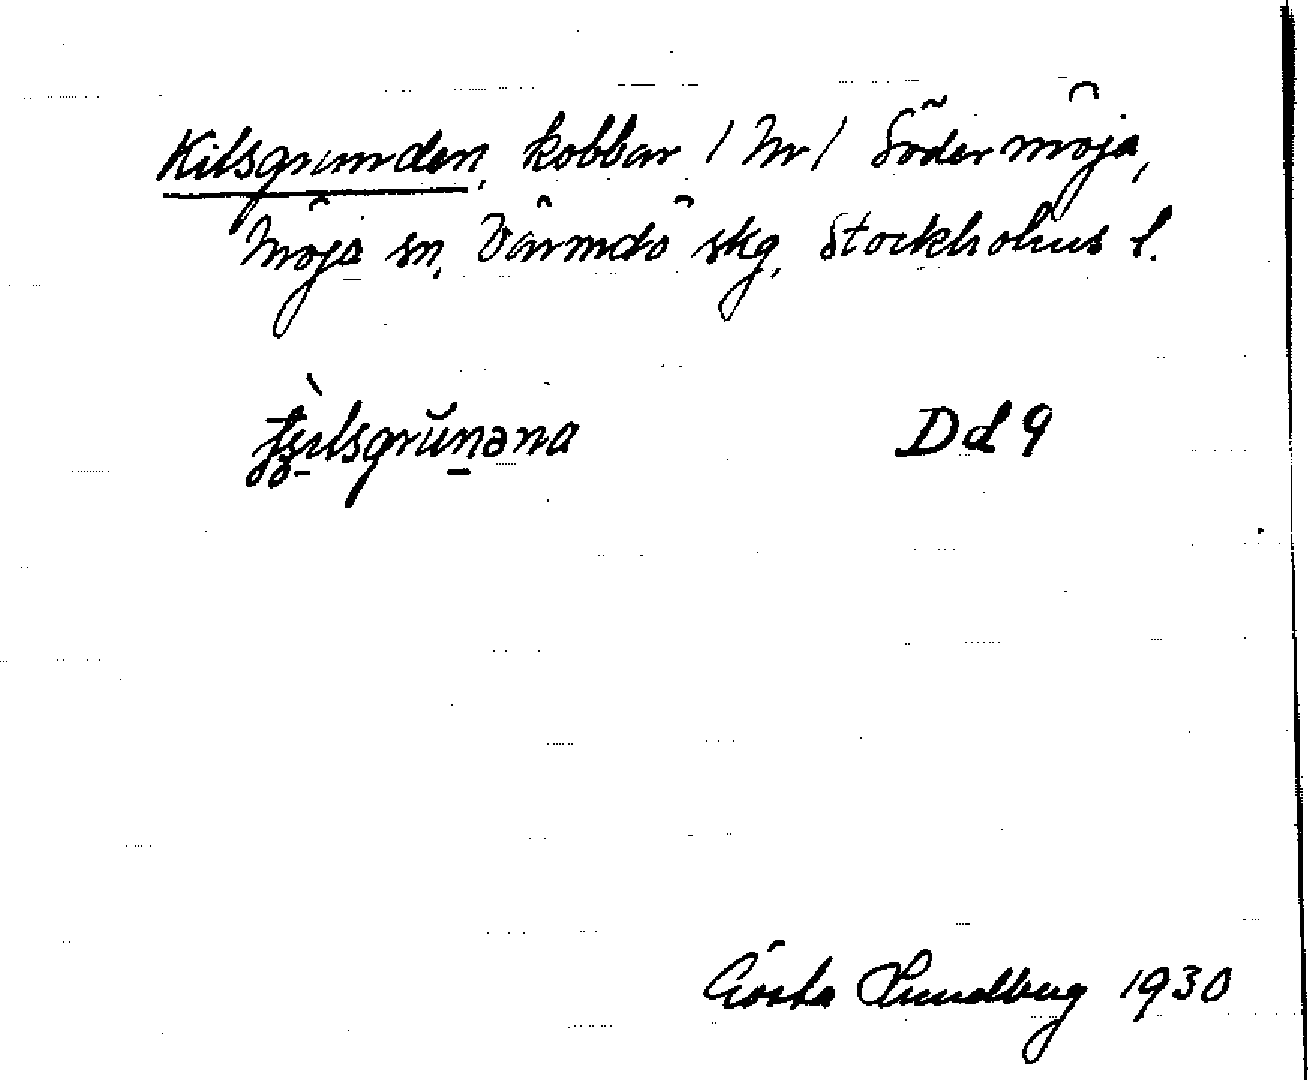 Kilsgrunden, kobbar / Nr / Södermöja,
Möja sn, Värmdö skg, Stockholms l.
Dd 9
Gösta Lundberg 1930